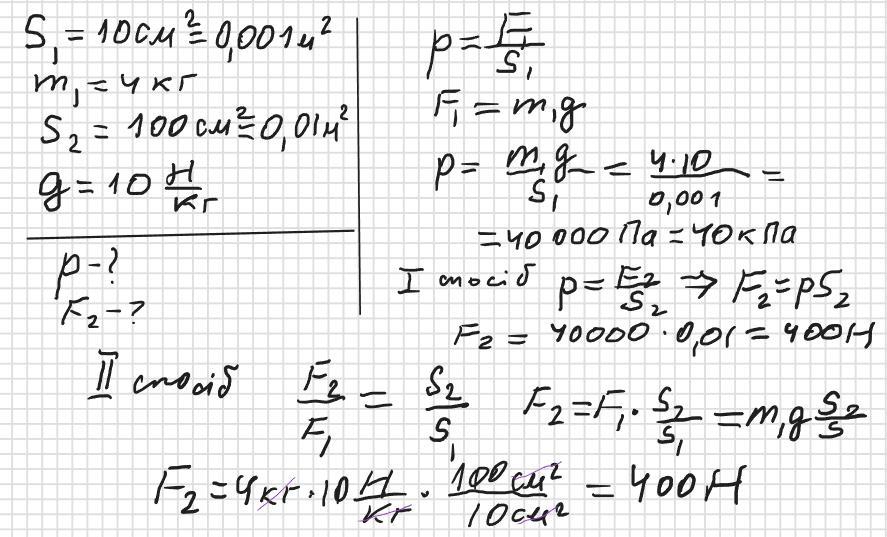 S₁ = 10 см² = 0,001 м²
m₁ = 4 кг
S₂ = 100 см² = 0,01 м²
g = 10 Н/кг
p - ?
F₂ - ?
p = F₁/S₁
F₁ = m₁g
p = m₁g/S₁ = 4·10/0,001 =
= 40 000 Па = 40 кПа
I спосіб p = F₂/S₂ ⇒ F₂ = pS₂
F₂ = 40000 · 0,01 = 400 Н
II спосіб F₂/F₁ = S₂/S₁ F₂ = F₁ · S₂/S₁ = m₁g S₂/S
F₂ = 4 кг · 10 Н/кг · 100 см²/10 см² = 400 Н